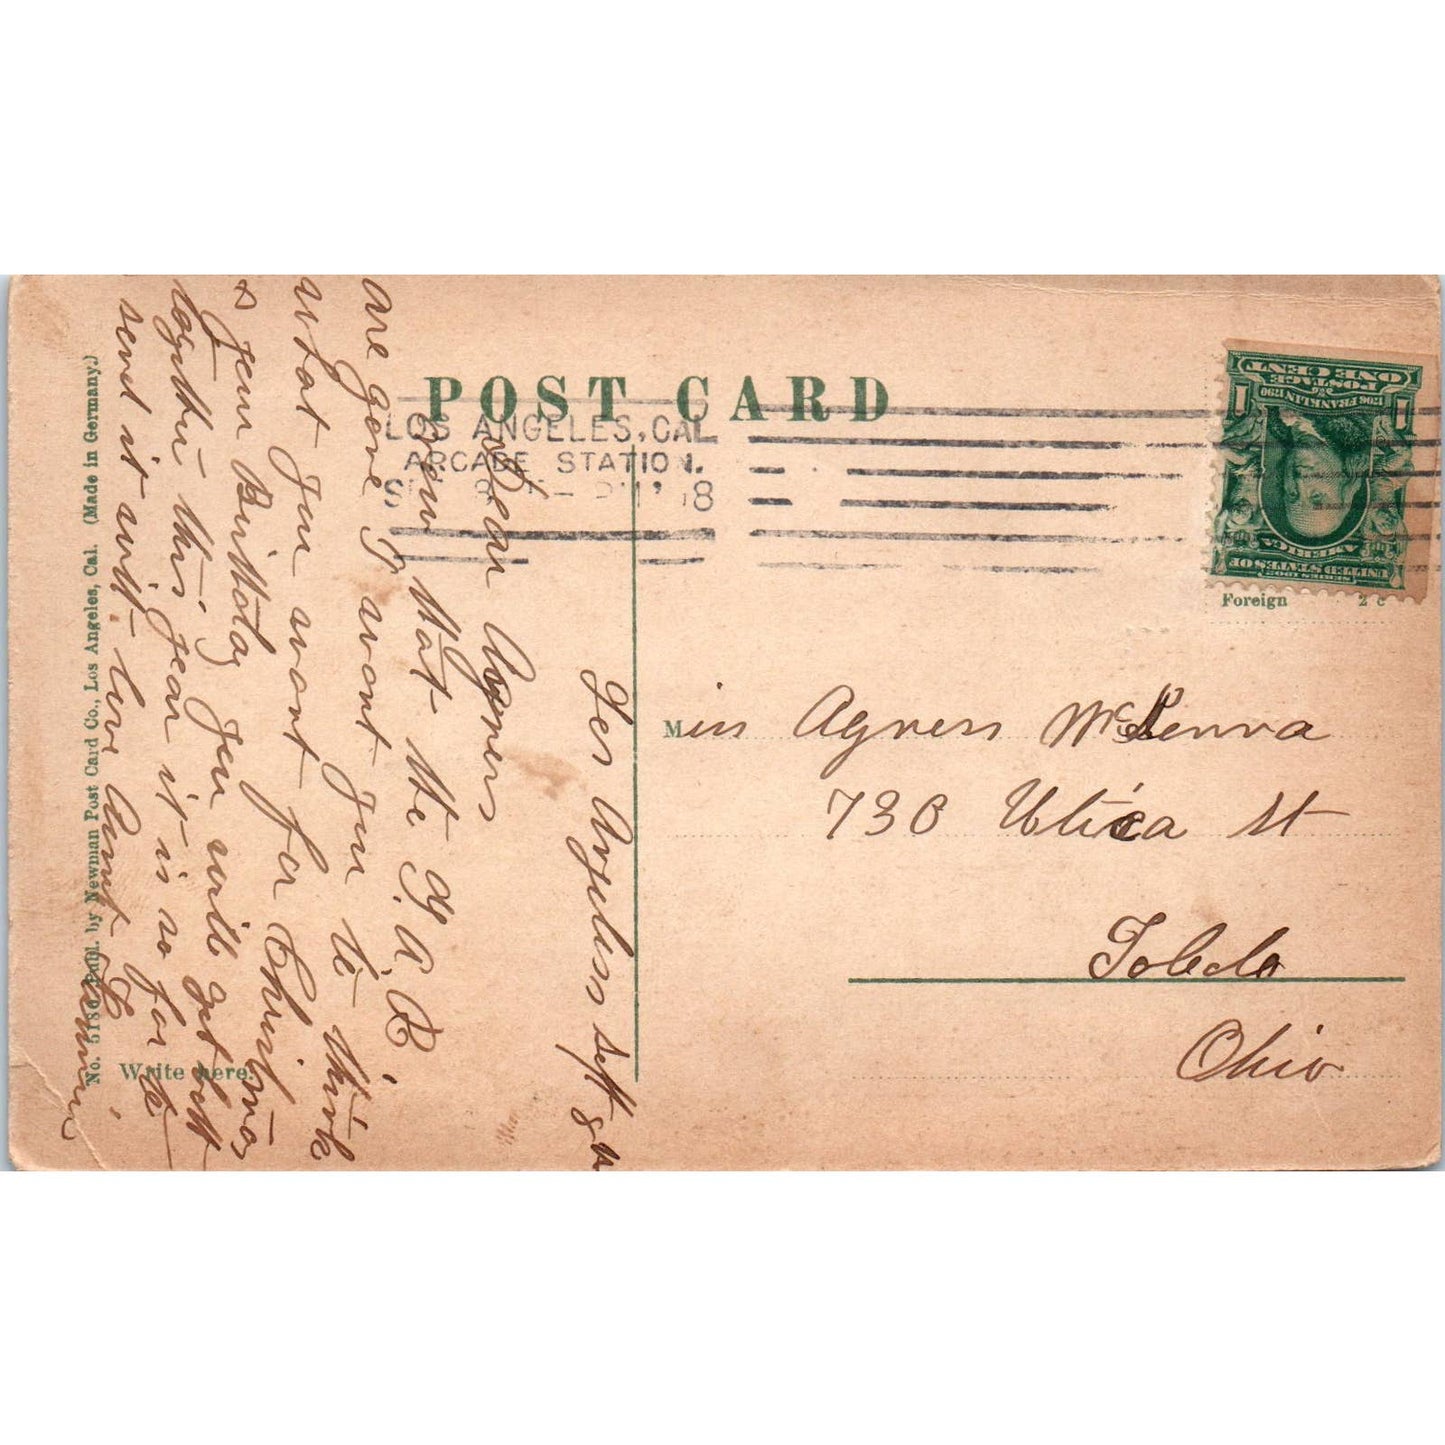 POST CARD
LOS ANGELES, CAL
ARCADE STATION.
8
UNITED STATES OF
AMERICA
1706 FRANKLIN 1790
POSTAGE
ONE CENT
1 1
Foreign 2 c
Miss Agness McKenna
730 Utica St
Toledo
Ohio
Los Angeless Sept 8
Dear Agness
now that the G. A. R
are gone I want you to think
what you want for Christmas
& your Birthday you will get both
together this year it is so far to
send it with love Aunt
Write here.
No. 5180 Publ. by Newman Post Card Co., Los Angeles, Cal. (Made in Germany.)